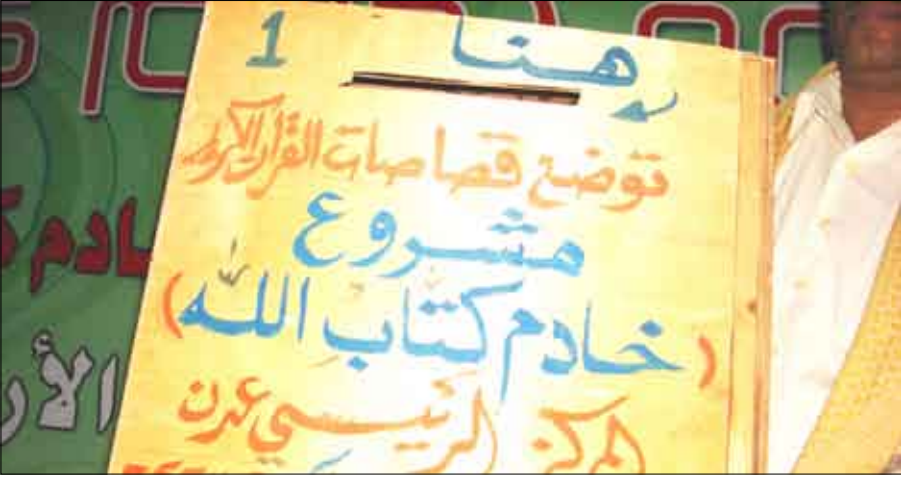 هنا 1
توضع قصاصات القرآن الكريم
مشروع
(خادم كتاب الله)
المركز الرئيسي عدن
ادم ك
الأر